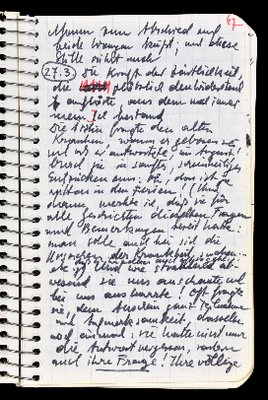 67
Mann zum Abschied auf
beide Wangen küßt; und diese
Stille nicht mehr
27.3. Die Kraft der Zärtlichkeit,
die plötzlich den Widerstand
auflöste, aus dem nur immer
mein Ich bestand
Die Ärztin fragte den alten
Kranken, wann er geboren sei
und als er antwortete, im August:
sie in sanftes,
Entzücken aus: Oh, das ist ja
mitten in den Ferien! (Und
dann merkte ich, daß sie für
alle Geschichten dieselben Fragen
und Bemerkungen bereit hatte:
man solle auch bei sich die
der Krankheit suchen,
etc.) Und wie strahlend ab-
wesend sie uns anschaute und
bei uns ausharrte! Oft fragte
sie, dem Anschein ganz Teilnahme
und Aufmerksamkeit, dasselbe
noch einmal: sie hatte nicht nur
die Antwort vergessen, sondern
auch ihre Frage! Ihre völlige